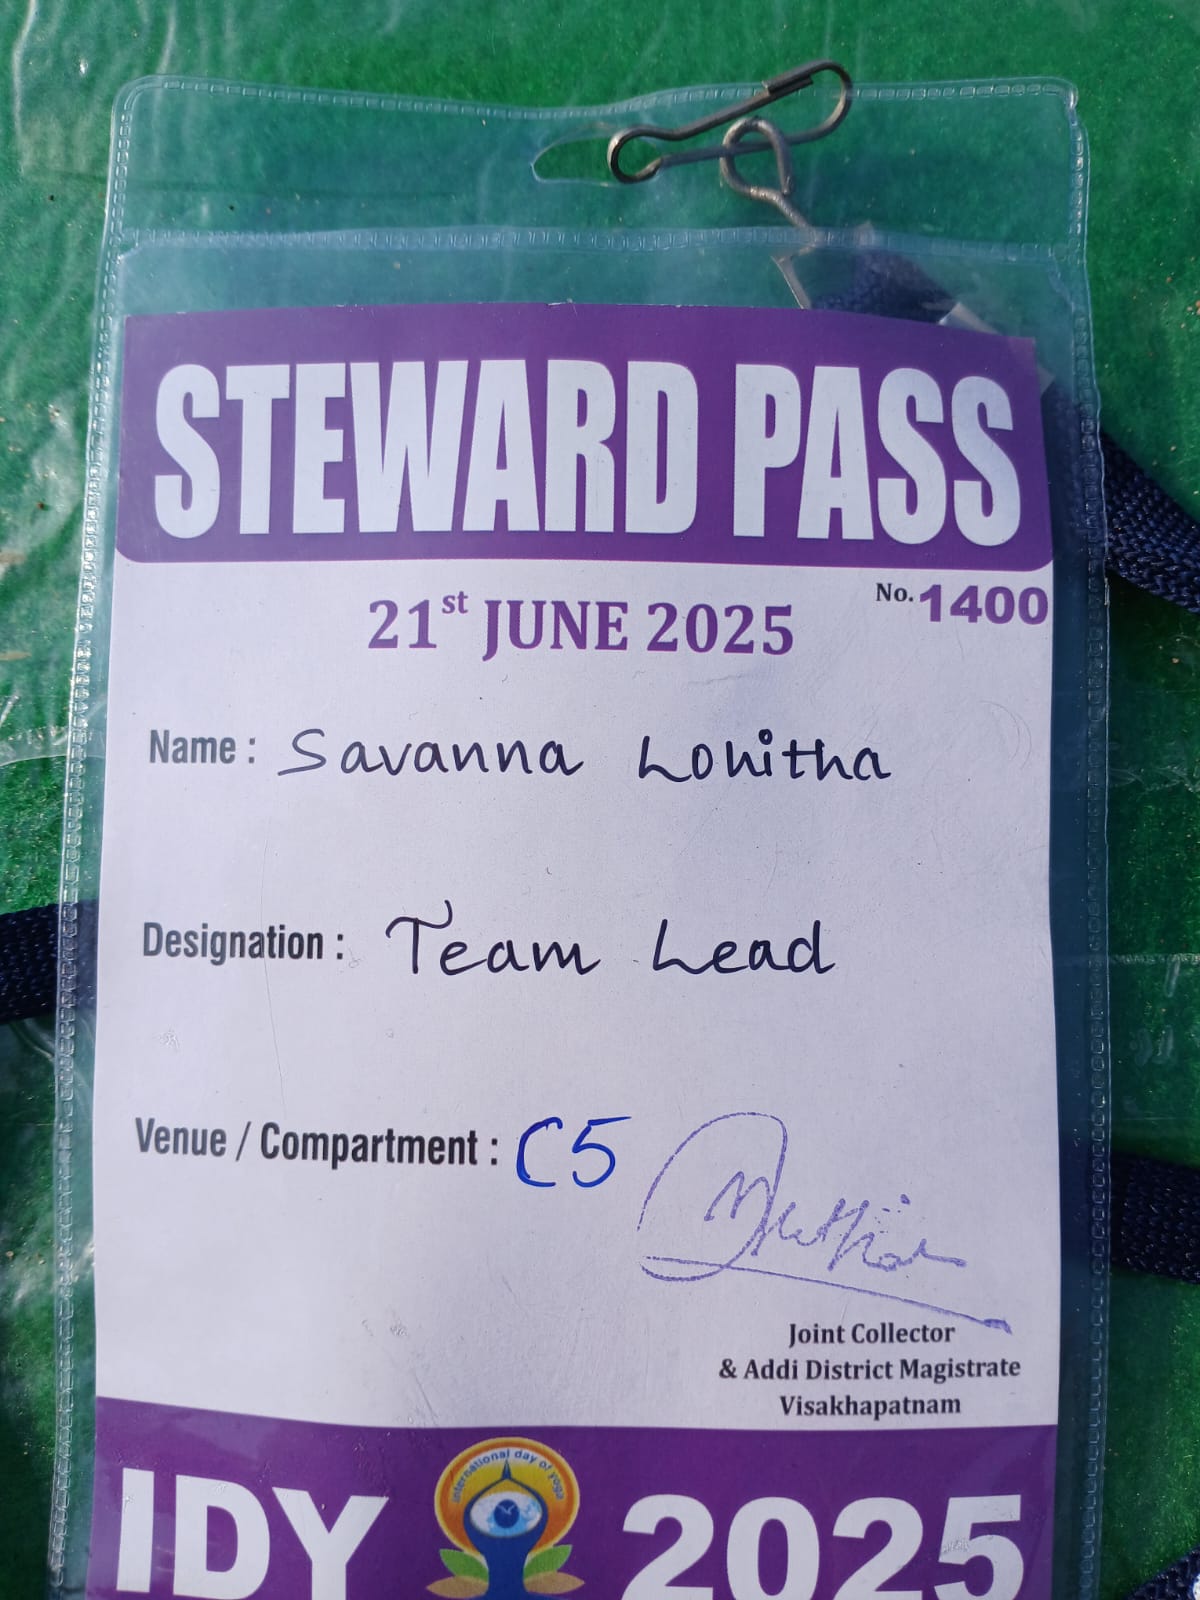 STEWARD PASS
No. 1400
21st JUNE 2025
Name : Savanna Lohitha
Designation : Team Lead
Venue / Compartment : C5
Joint Collector
& Addi District Magistrate
Visakhapatnam
international day of yoga
IDY 2025